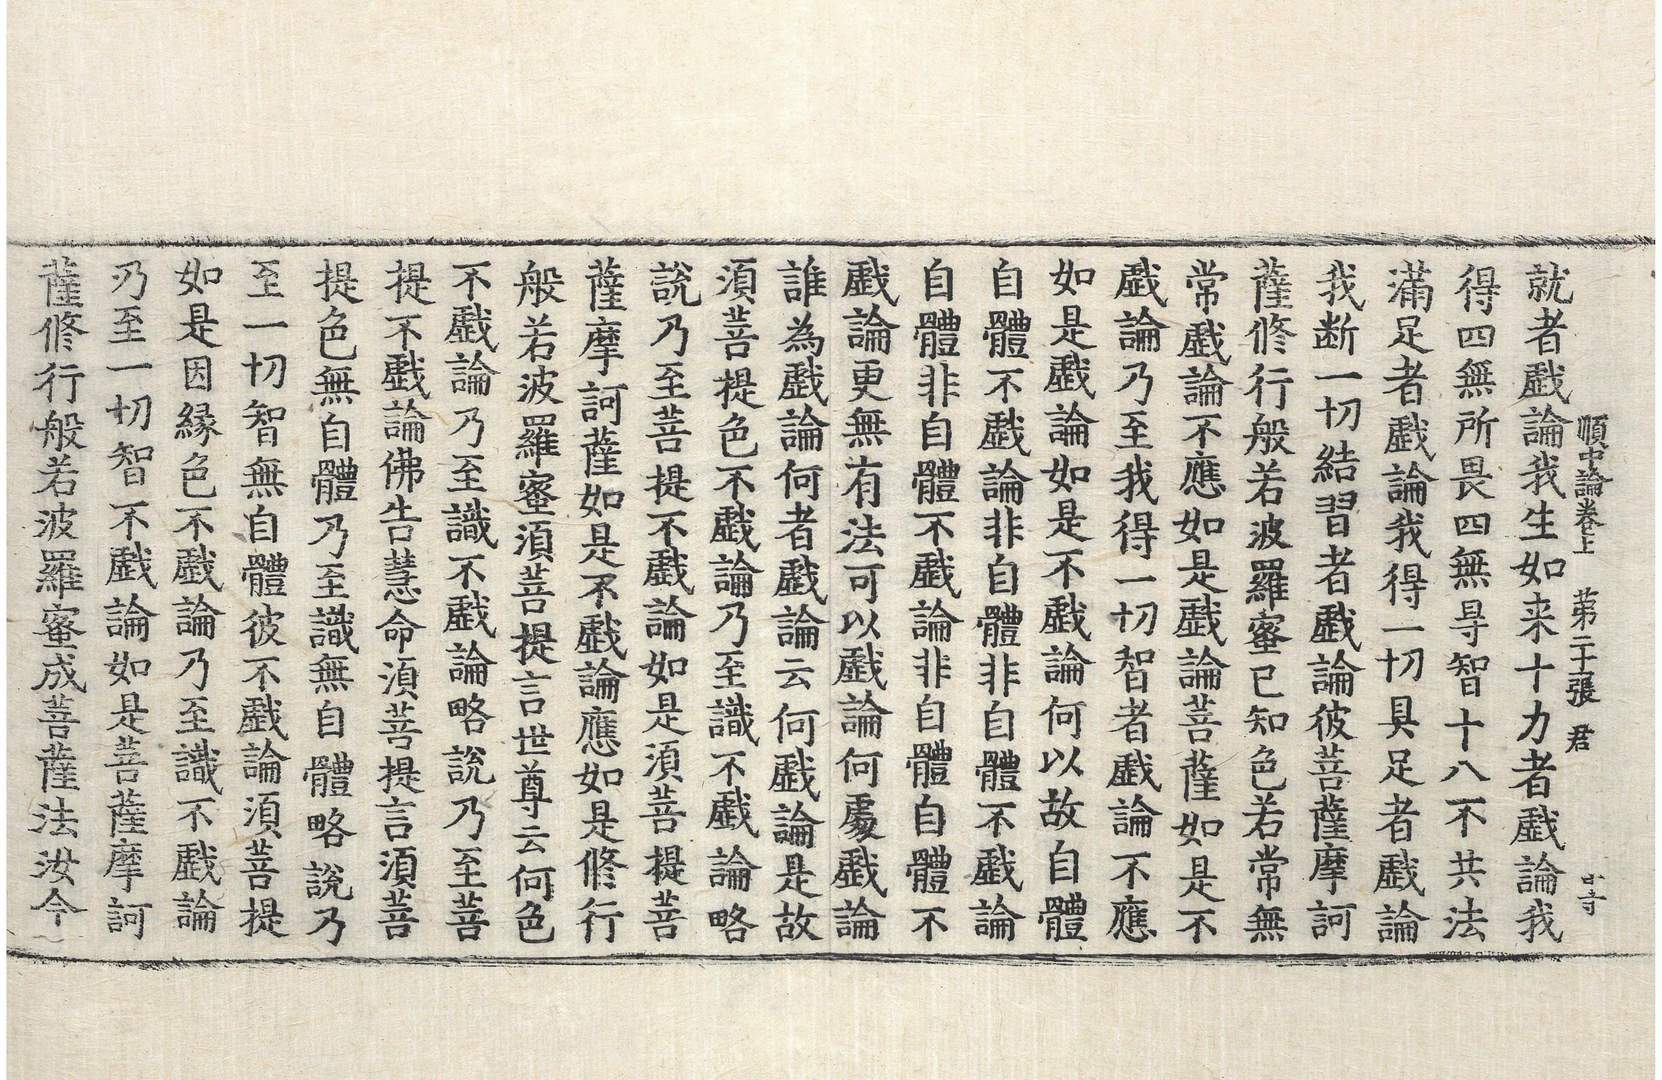 順中論卷上 苐二十張 君
就者戯論我生如来十力者戯論我
得四無所畏四無㝵智十八不共法
滿足者戯論我得一切具足者戯論
我断一切結習者戯論彼菩薩摩訶
薩修行般若波羅蜜已知色若常無
常戯論不應如是戯論菩薩如是不
戯論乃至我得一切智者戯論不應
如是戯論如是不戯論何以故自體
自體不戯論非自體非自體不戯論
自體非自體不戯論非自體自體不
戯論更無有法可以戯論何處戯論
誰為戯論何者戯論云何戯論是故
須菩提色不戯論乃至識不戯論略
說乃至菩提不戯論如是須菩提菩
薩摩訶薩如是不戯論應如是修行
般若波羅蜜須菩提言世尊云何色
不戯論乃至識不戯論略說乃至菩
提不戯論佛告慧命須菩提言須菩
提色無自體乃至識無自體略說乃
至一切智無自體彼不戯論須菩提
如是因緣色不戯論乃至識不戯論
乃至一切智不戯論如是菩薩摩訶
薩修行般若波羅蜜成菩薩法汝今